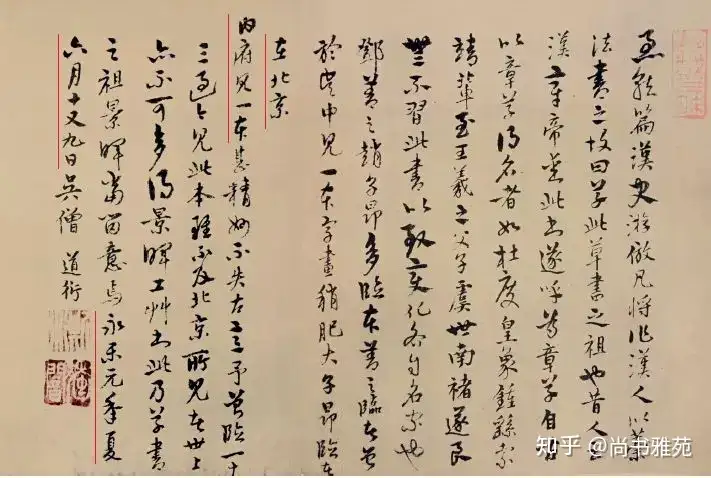 急就篇漢史游倣凡將作漢人以
法書之故曰草此草書之祖也昔人云
漢章帝愛此書遂呼為章草自昔
以章草得名者如杜度皇象鍾繇索
靖輩至王羲之父子虞世南褚遂良
無不習此書以致變化各自名家也
鄧善之趙子昂多臨本善之臨本曾
於吳中見一本字畫稍肥大子昂臨本
在北京
內府見一本甚精妙不失古意予嘗臨一十
三過今見此本雖不及北京所見在世上
亦不可多得景暉工艸書此乃草書
之祖景暉當留意焉永樂元年夏
六月十又九日吳僧 道衍
知乎 @尚书雅苑